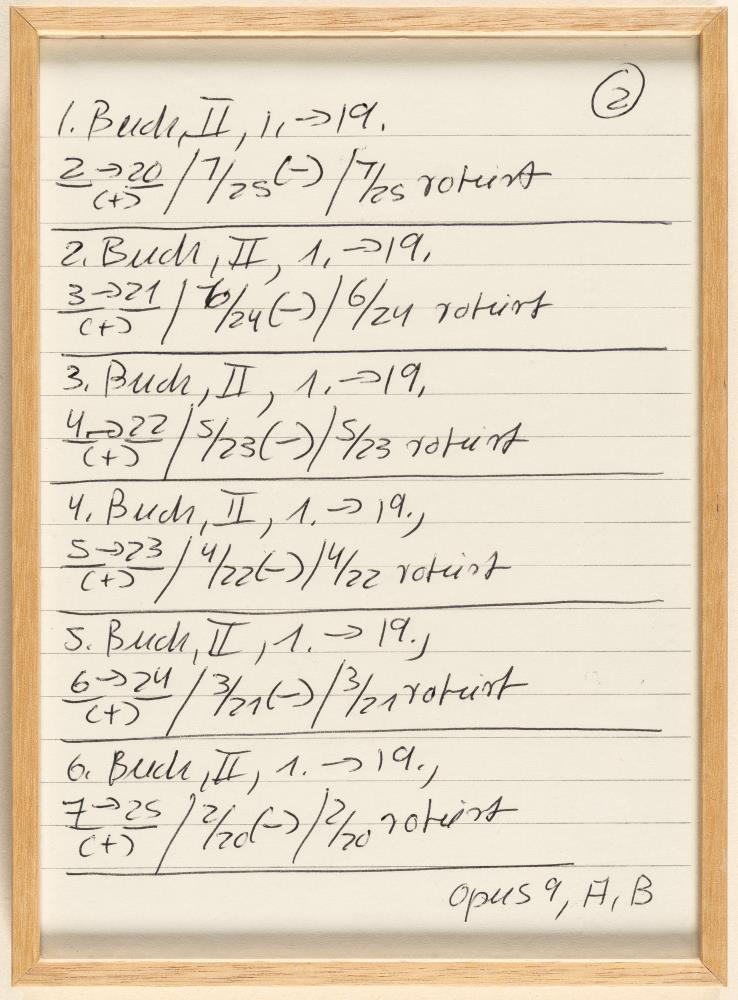 ②
1. Buch, II, 1, →19.
2→20 / 7/25 (-) / 7/25 rotiert
(+)
2. Buch, II, 1. →19.
3→21 / 6/24 (-) / 6/24 rotiert
(+)
3. Buch, II, 1. →19.
4→22 / 5/23 (-) / 5/23 rotiert
(+)
4. Buch, II, 1. → 19.,
5→23 / 4/22 (-) / 4/22 rotiert
(+)
5. Buch, II, 1. → 19.,
6→24 / 3/21 (-) / 3/21 rotiert
(+)
6. Buch, II, 1. → 19.,
7→25 / 2/20 (-) / 2/20 rotiert
(+)
opus 9, A, B